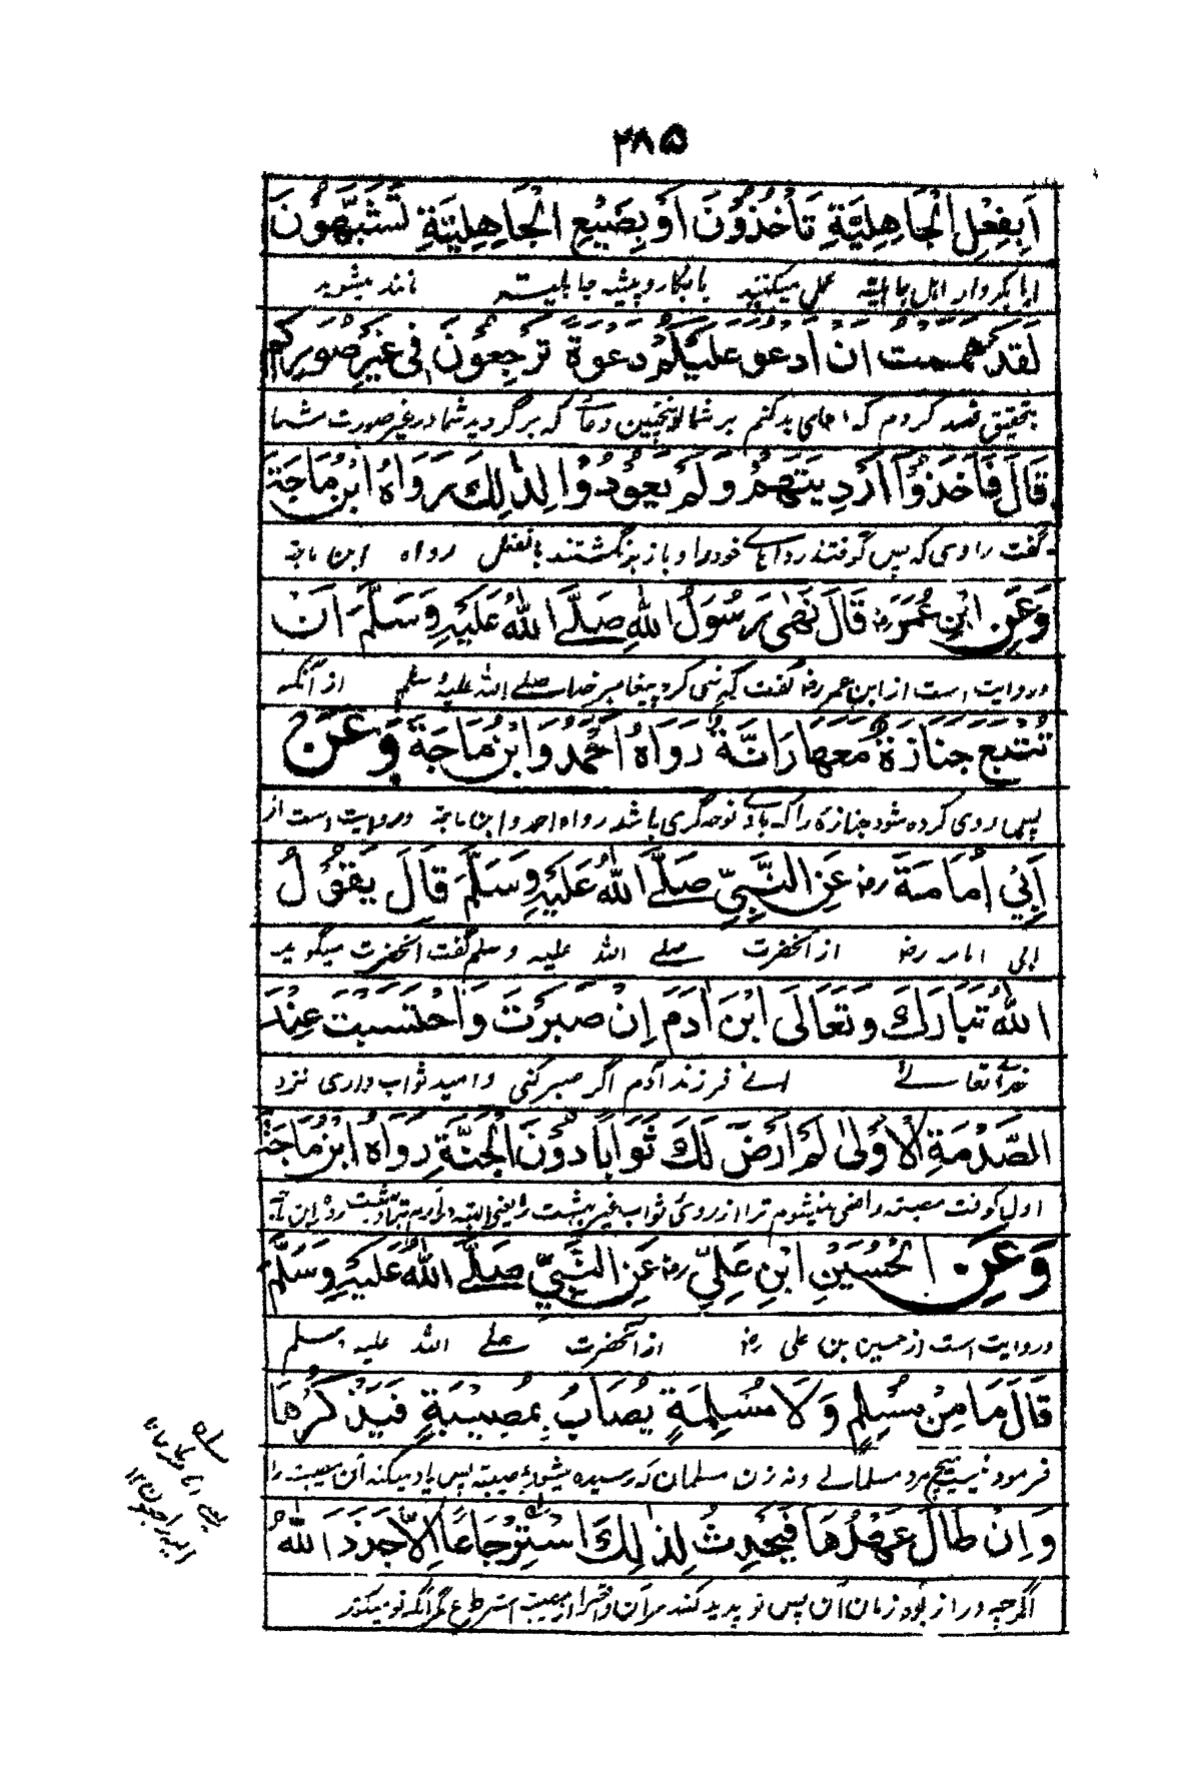 ۲۸۵
اَبِفِعْلِ الْجَاهِلِيَّةِ تَأْخُذُوْنَ اَوْ بِصَنِيْعِ الْجَاهِلِيَّةِ تَشَبَّهُوْنَ
ایا بکردار اہل جاہلیتہ عمل میکنید یا بکار و پیشہ جاہلیتہ مانند میشوید
لَقَدْ هَمَمْتُ اَنْ اَدْعُوَ عَلَيْكُمْ دَعْوَةً تَرْجِعُوْنَ فِى غَيْرِ صُوَرِكُمْ
بتحقیق قصد کردم کہ دعای بد کنم بر شما اینچنین دعائے کہ برگردید شما در غیر صورت شما
قَالَ فَاَخَذُوْا اَرْدِيَتَهُمْ وَلَمْ يَعُوْدُوْا لِذٰلِكَ رَوَاهُ ابْنُ مَاجَةَ
گفت راوی کہ پس گرفتند رداہائے خود را و باز بر نگشتند باینفعل رواہ ابن ماجة
وَعَنِ ابْنِ عُمَرَ رض قَالَ نَهٰى رَسُوْلُ اللهِ صَلَّے اللهُ عَلَيْهِ وَسَلَّمَ اَنْ
و روایت است از ابن عمر رض گفت کہ نہی کرد پیغامبر خدا صلے اللہ علیہ و سلم از آنکہ
تُتْبَعَ جَنَازَةٌ مَعَهَا رَانَّةٌ رَوَاهُ اَحْمَدُ وَابْنُ مَاجَةَ وَعَنْ
پس روی کردہ شود جنازہ را کہ با وے نوحہ گری باشد رواہ احمد و ابن ماجة و روایت است از
اَبِيْ اُمَامَةَ رض عَنِ النَّبِيِّ صَلَّے اللهُ عَلَيْهِ وَسَلَّمَ قَالَ يَقُوْلُ
ابی امامہ رض از آنحضرت صلے اللہ علیہ و سلم گفت آنحضرت میگوید
اللهُ تَبَارَكَ وَتَعَالَى ابْنَ اٰدَمَ اِنْ صَبَرْتَ وَاحْتَسَبْتَ عِنْدَ
خدائتعالے اے فرزند آدم اگر صبر کنی و امید ثواب داری نزد
الصَّدْمَةِ الْاُوْلٰى لَمْ اَرْضَ لَكَ ثَوَابًا دُوْنَ الْجَنَّةِ رَوَاهُ ابْنُ مَاجَةَ
اول کوفت مصیبتہ راضی نمیشوم ترا از روی ثواب غیر بہشت را یعنی البتہ
وَعَنِ الْحُسَيْنِ ابْنِ عَلِيٍّ رض عَنِ النَّبِيِّ صَلَّے اللهُ عَلَيْهِ وَسَلَّمَ
و روایت است از حسین بن علی رض از آنحضرت صلے اللہ علیہ وسلم
قَالَ مَا مِنْ مُسْلِمٍ وَلَا مُسْلِمَةٍ يُصَابُ بِمُصِيْبَةٍ فَيَذْكُرُهَا
فرمود نیست ہیچ مرد مسلمانے و نہ زن مسلمان کہ رسیدہ میشود مصیبتہ پس یاد میکند آن مصیبتہ را
وَاِنْ طَالَ عَهْدُهَا فَيُحْدِثُ لِذٰلِكَ اسْتِرْجَاعًا اِلَّا جَدَّدَ اللهُ
اگرچہ دراز بود زمان آن پس نو پدید کند مر آن مگر آنکہ نو میکند